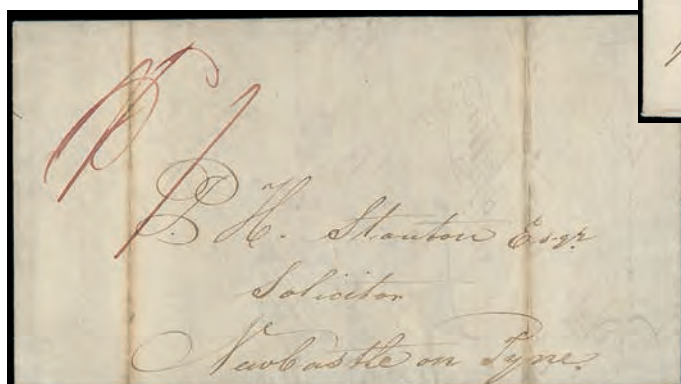 P. H. Stanton Esqr.
Solicitor
Newcastle on Tyne.